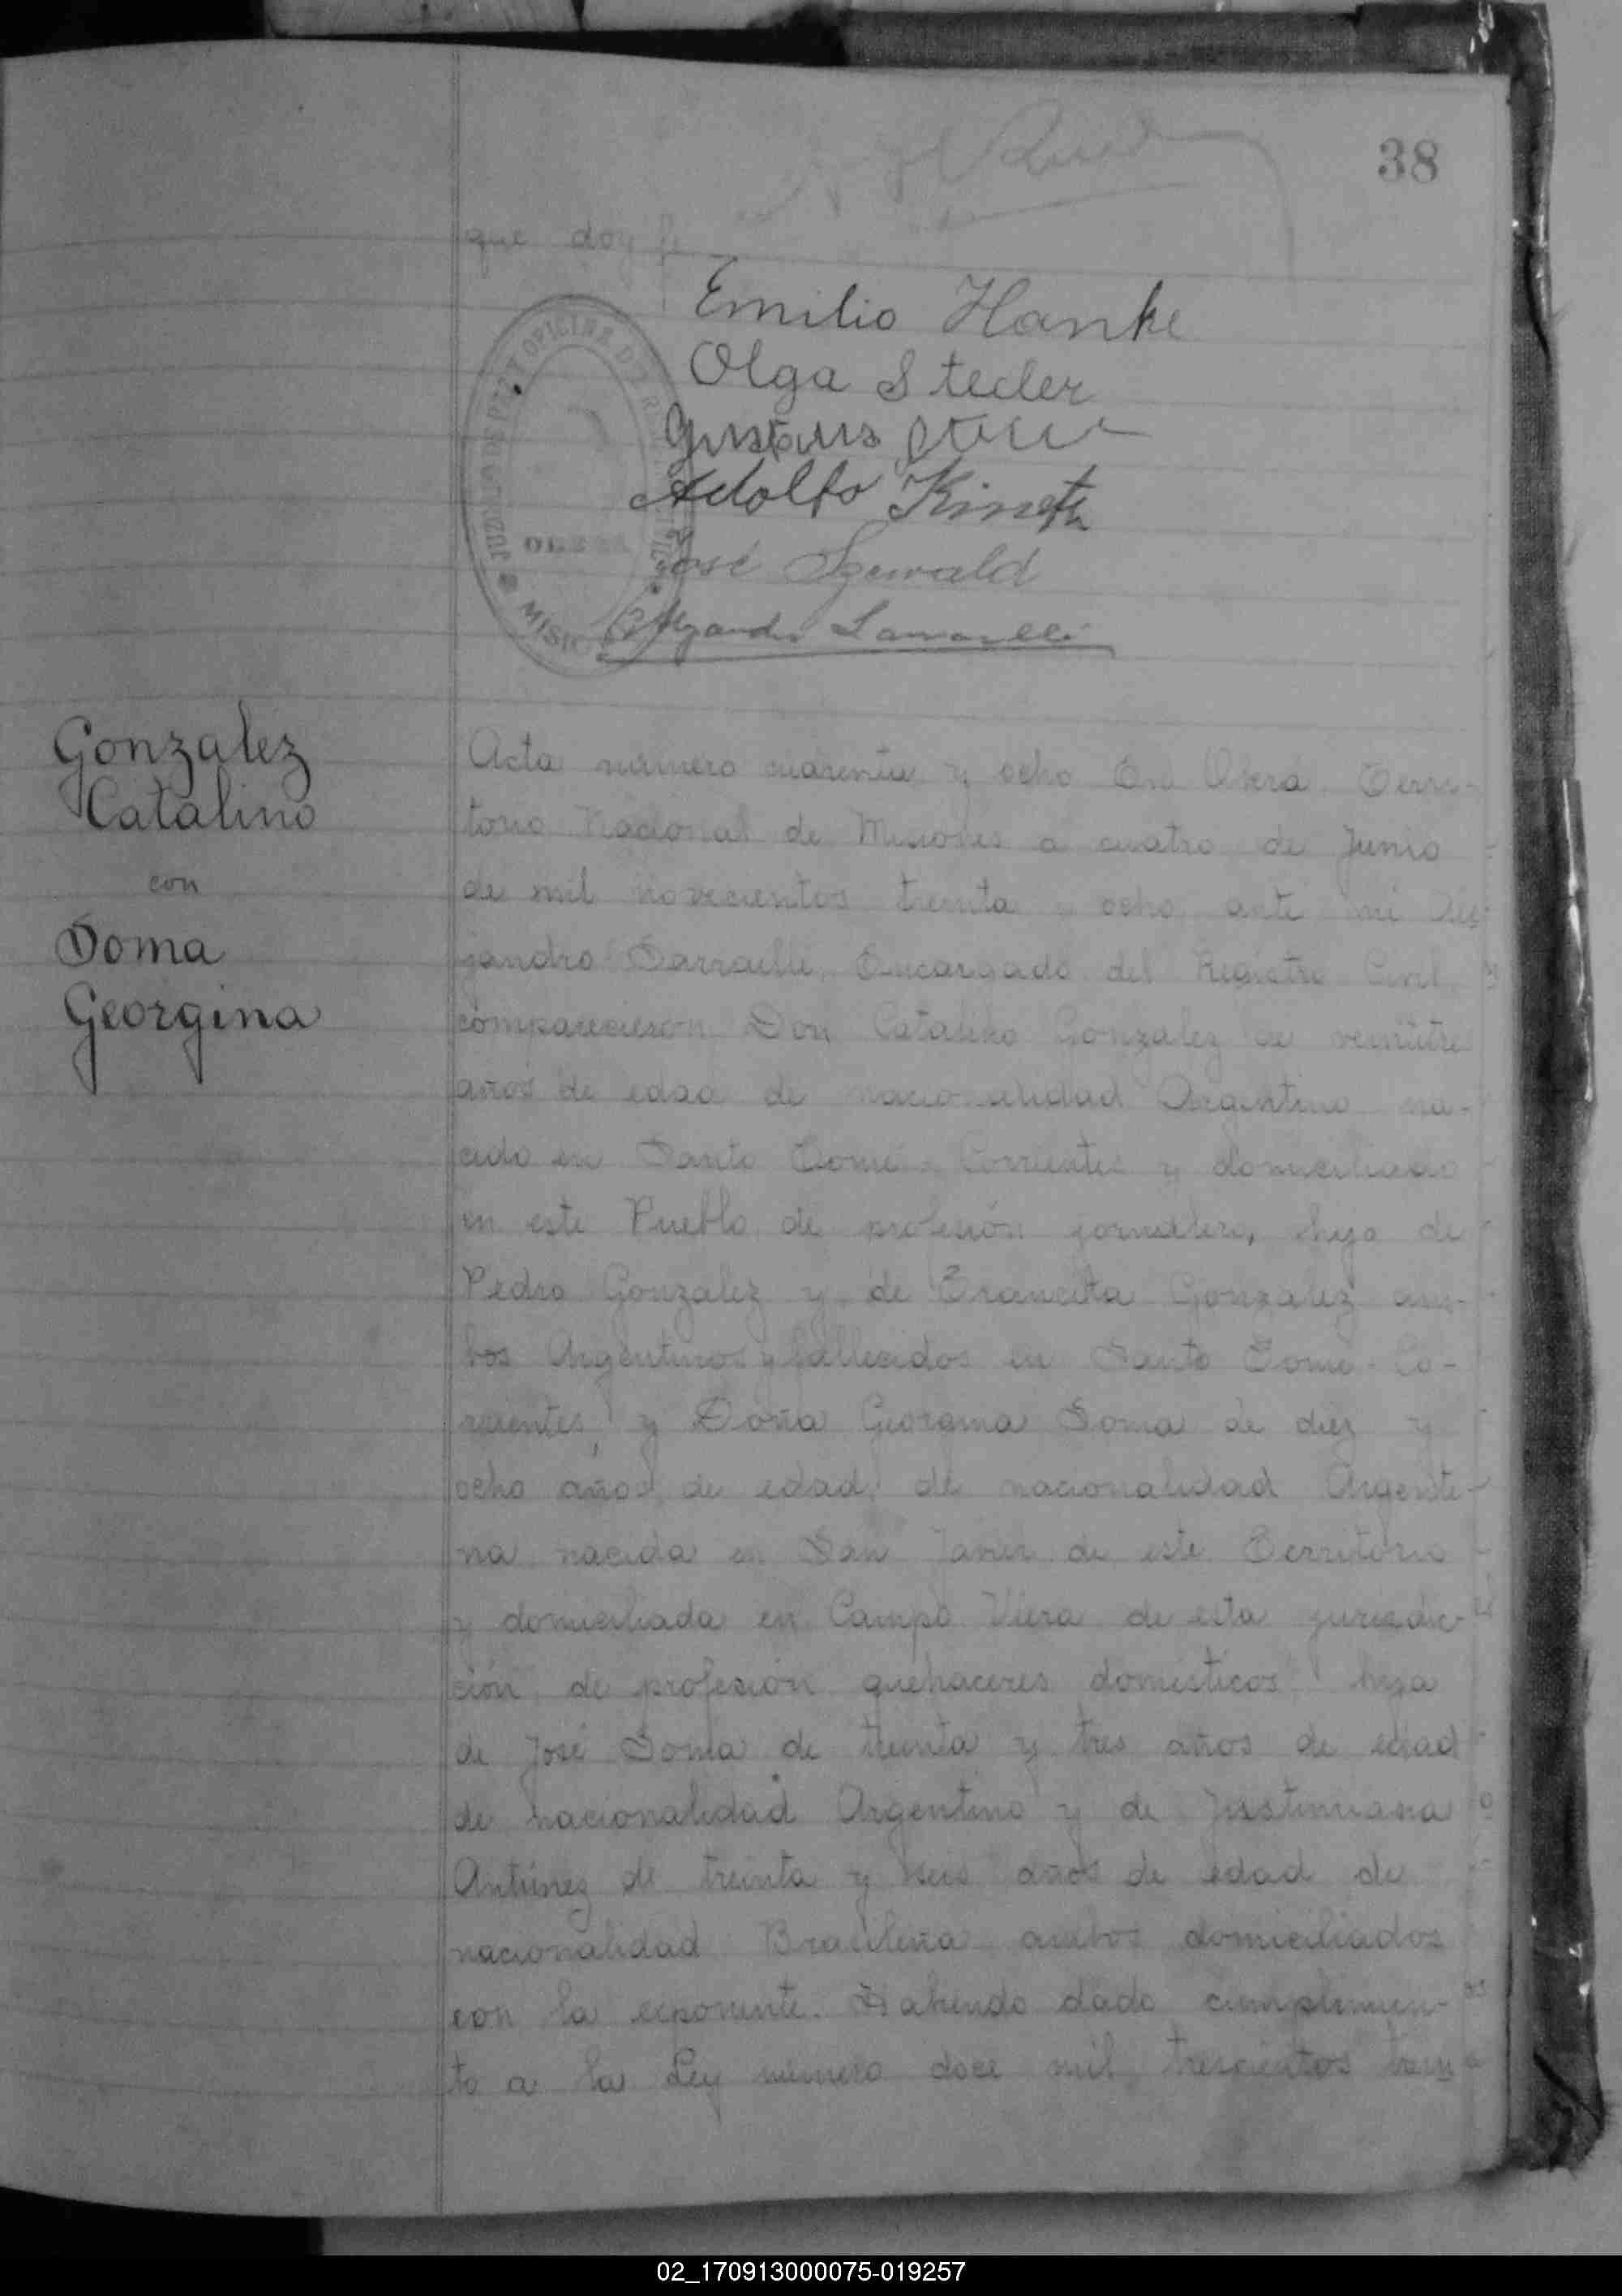 38
que doy fe
Emilio Hanke
Olga Steeler
Gustavo
Adolfo Kineth
José Szewald
Alejandro
OFICINA
OBERA
MISIONES
Gonzalez
Catalino
con
Soma
Georgina
Acta número cuarenta y ocho En Oberá Terri-
torio Nacional de Misiones a cuatro de Junio
de mil novecientos treinta y ocho ante mi Ale-
jandro Encargado del Registro Civil
comparecieron Don Catalino Gonzalez de veintitre
años de edad de nacionalidad Argentino na-
cido en Santo Tomé - Corrientes y domiciliado
en este Pueblo de profesión jornalero, hijo de
Pedro Gonzalez y de Francisca Gonzalez am-
bos Argentinos y fallecidos en Santo Tomé - Co-
rrientes, y Doña Georgina Soma de diez y
ocho años de edad, de nacionalidad Argenti-
na nacida en San Javier de este Territorio
y domiciliada en Campo Viera de esta jurisdic-
ción de profesión quehaceres domésticos hija
de José Soma de treinta y tres años de edad
de nacionalidad Argentino y de Justiniana
Antúnez de treinta y seis años de edad de
nacionalidad Brasileña ambos domiciliados
con la exponente. Habiendo dado cumplimien-
to a la Ley número doce mil trescientos trein
02_170913000075-019257